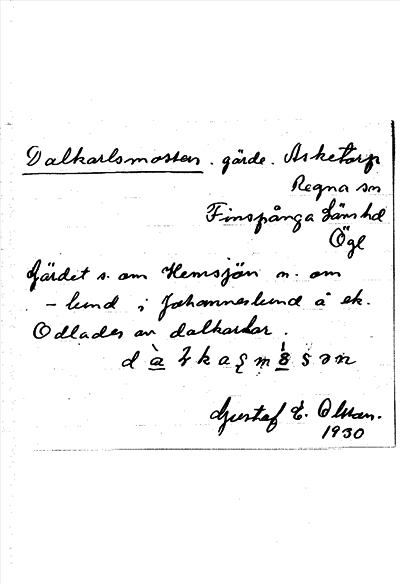 Dalkarlsmossen. gärde. Asketorp
Regna sn
Finspånga länshd
Ögl
Gärdet s. om Hemsjön n. om
- lund i Johanneslund å ek.
Odlades av dalkarlar.
Gustaf E. Olsson.
1930